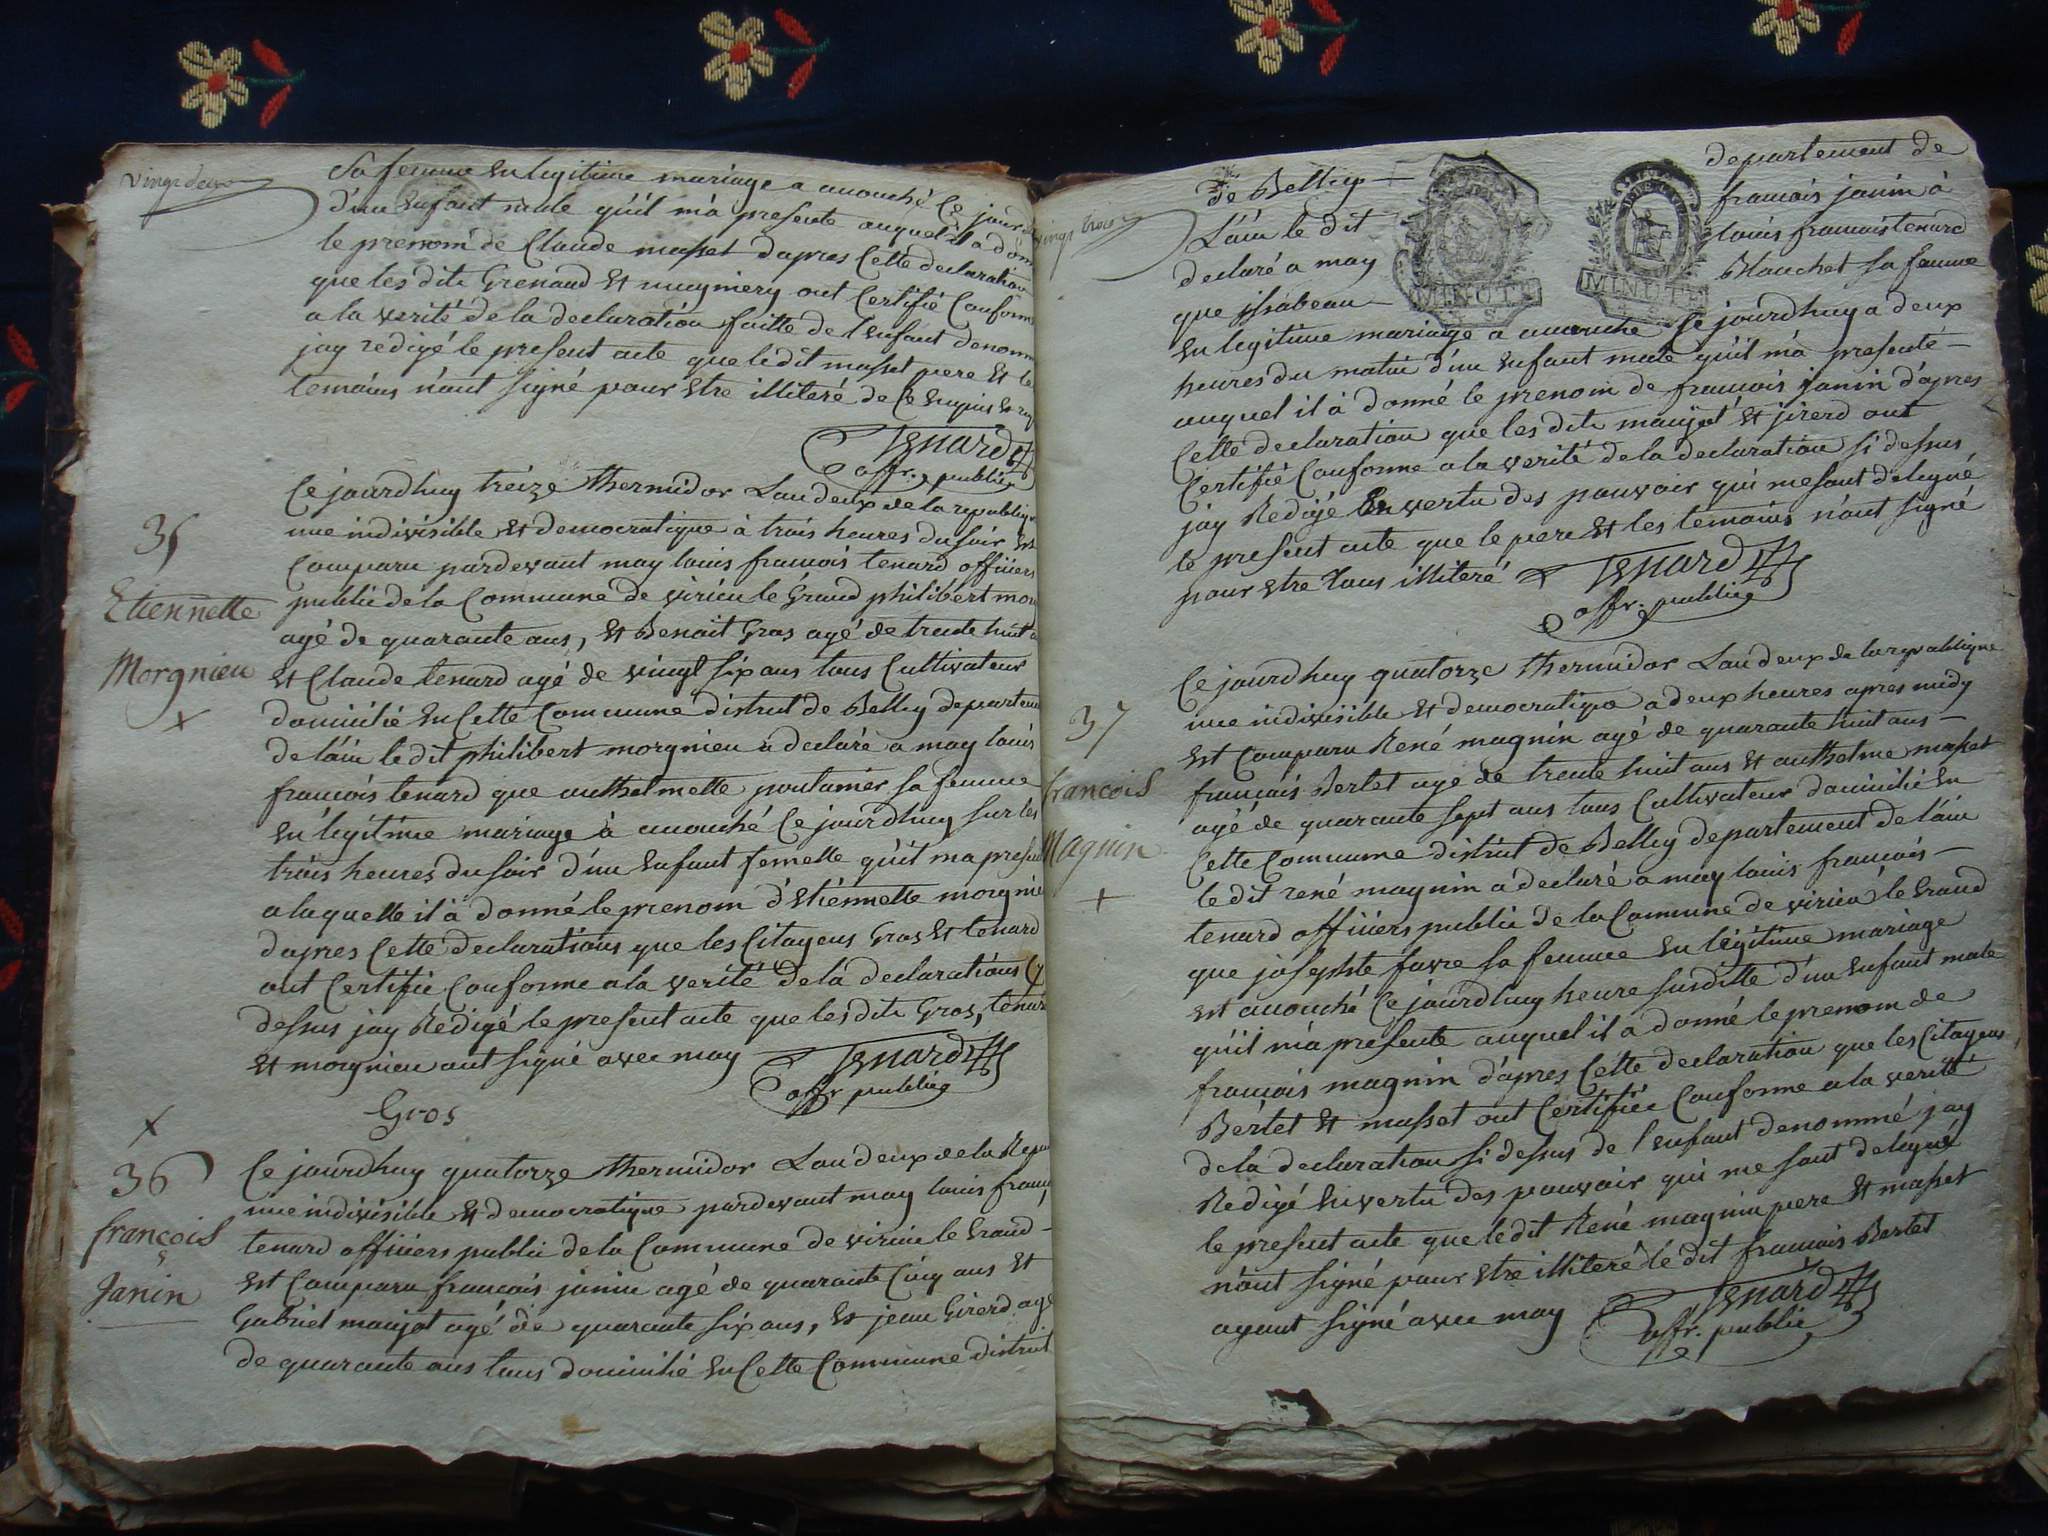 vingt deux
Sa femme en legitime mariage a acouché Ce jourd
d'un Enfant male qu'il m'a presenté auquel il a don
le prenom de Claude masset d'apres Cette declaration
que les dits Grenaud Et mugniery ont Certifié Conforme
a la verité de la declaration faitte de l'enfant denomm
jay redigé le present acte que le dit masset pere Et le
temoins n'ont signé pour Estre illiteré de Ce
Tenard
offr. publie
35
Etiennette
Morgnieu
Ce jourdhuy treize thermidor Lan deux de la republiq
une indivisible Et democratique à trois heures du soir Est
Comparu pardevant moy louis francois tenard officiers
public de la Commune de virieu le Grand philibert mor
agé de quarante ans, Et Benoit Gros agé de trente huit a
Et Claude tenard agé de vingt six ans tous Cultivateur
domicilié En Cette Commune district de Belley departem
de l'ain le dit philibert morgnieu a declaré a moy louis
francois tenard que anthelmette pontanier sa femme
En legitime mariage à acouché Ce jourdhuy sur les
trois heures du soir d'un Enfant femelle qu'il ma presen
a laquelle il a donné le prenom d'Etiennette morgnie
d'apres Cette declarations que les Citoyens Gros Et tenard
ont Certifie Conforme a la verité de la declarations Cy
dessus jay Redigé le present acte que les dits Gros, tenar
Et morgnieu ont signé avec moy Tenard
offr publie
Gros
36
françois
Janin
Ce jourdhuy quatorze thermidor Lan deux de la Repu
une indivisible Et democratique pardevant moy louis franç
tenard officiers public de la Commune de virieu le Grand
Est Comparu francois janin agé de quarante Cinq ans Et
Gabriel maujot agé de quarante six ans, Et jean Girerd agé
de quarante ans tous domicilié En Cette Commune district
vingt trois
de Belley departement de
L'ain le dit francois janin à
declaré a moy louis francois tenard
que issabeau Blanchet sa femme
MINUTE
MINUTE
En legitime mariage a acouche Ce jourdhuy a deux
heures du matin d'un Enfant male qu'il m'a presenté
auquel il à donné le prenom de francois janin d'apres
Cette declaration que les dits maujot Et jirerd ont
Certifié Conforme a la verité de la declaration si dessus
jay Redigé En vertu des pouvoir qui me sont delegué
le present acte que le pere Et les temoins n'ont signé
pour Estre Tous illiteré Tenard
offr. publie
37
francois
Magnin
Ce jourdhuy quatorze thermidor Lan deux de la republique
une indivisible Et democratique a deux heures apres midy
Est Comparu René magnin agé de quarante huit ans
francois Bertet agé de trente huit ans Et anthelme masset
agé de quarante sept ans tous Cultivateur domicilié En
Cette Commune district de Belley departement de l'ain
le dit rené magnin a declaré a moy louis francois
tenard officiers public de la Commune de virieu le Grand
que josephte favre sa femme En legitime mariage
Est acouché Ce jourdhuy heure susditte d'un Enfant male
qu'il m'a presente auquel il a donné le prenom de
francois magnin d'apres Cette declaration que les Citoyens
Bertet Et masset ont Certifiée Conforme a la verité
de la declaration si dessus de l'enfant denommé jay
Redigé En vertu des pouvoir qui me sont delegué
le present acte que le dit René magnin pere Et masset
n'ont signé pour Estre illiteré le dit francois Bertet
ayant signé avec moy Tenard
offr. public